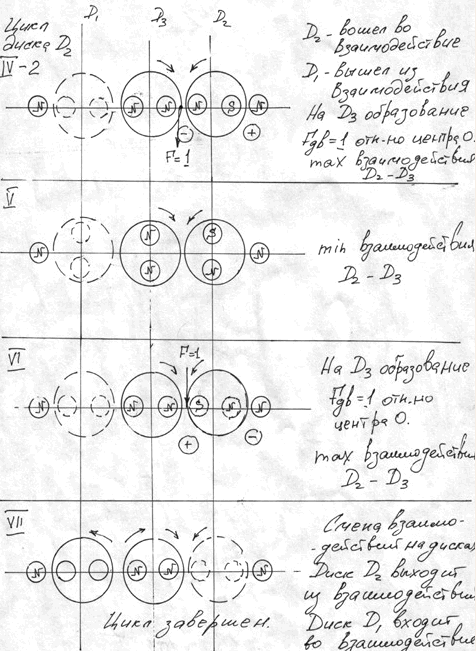 Цикл
диска D2
D1 D3 D2
IV-2
N N N N S N
- +
F=1
D2 - вошел во
взаимодействие
D1 - вышел из
взаимодействия
На D3 образование
Fдв=1 отн-но центра O.
max взаимодействия
D2-D3
V
N N S N
N N
min взаимодействия
D2 - D3
VI
F=1
N N N S N N
+ -
На D3 образование
Fдв=1 отн-но
центра O.
max взаимодействия
D2 - D3
VII
N N N N
Смена взаимо-
-действий на дисках
Диск D2 выходит
из взаимодействия
Диск D1 входит
во взаимодействие
Цикл завершен.